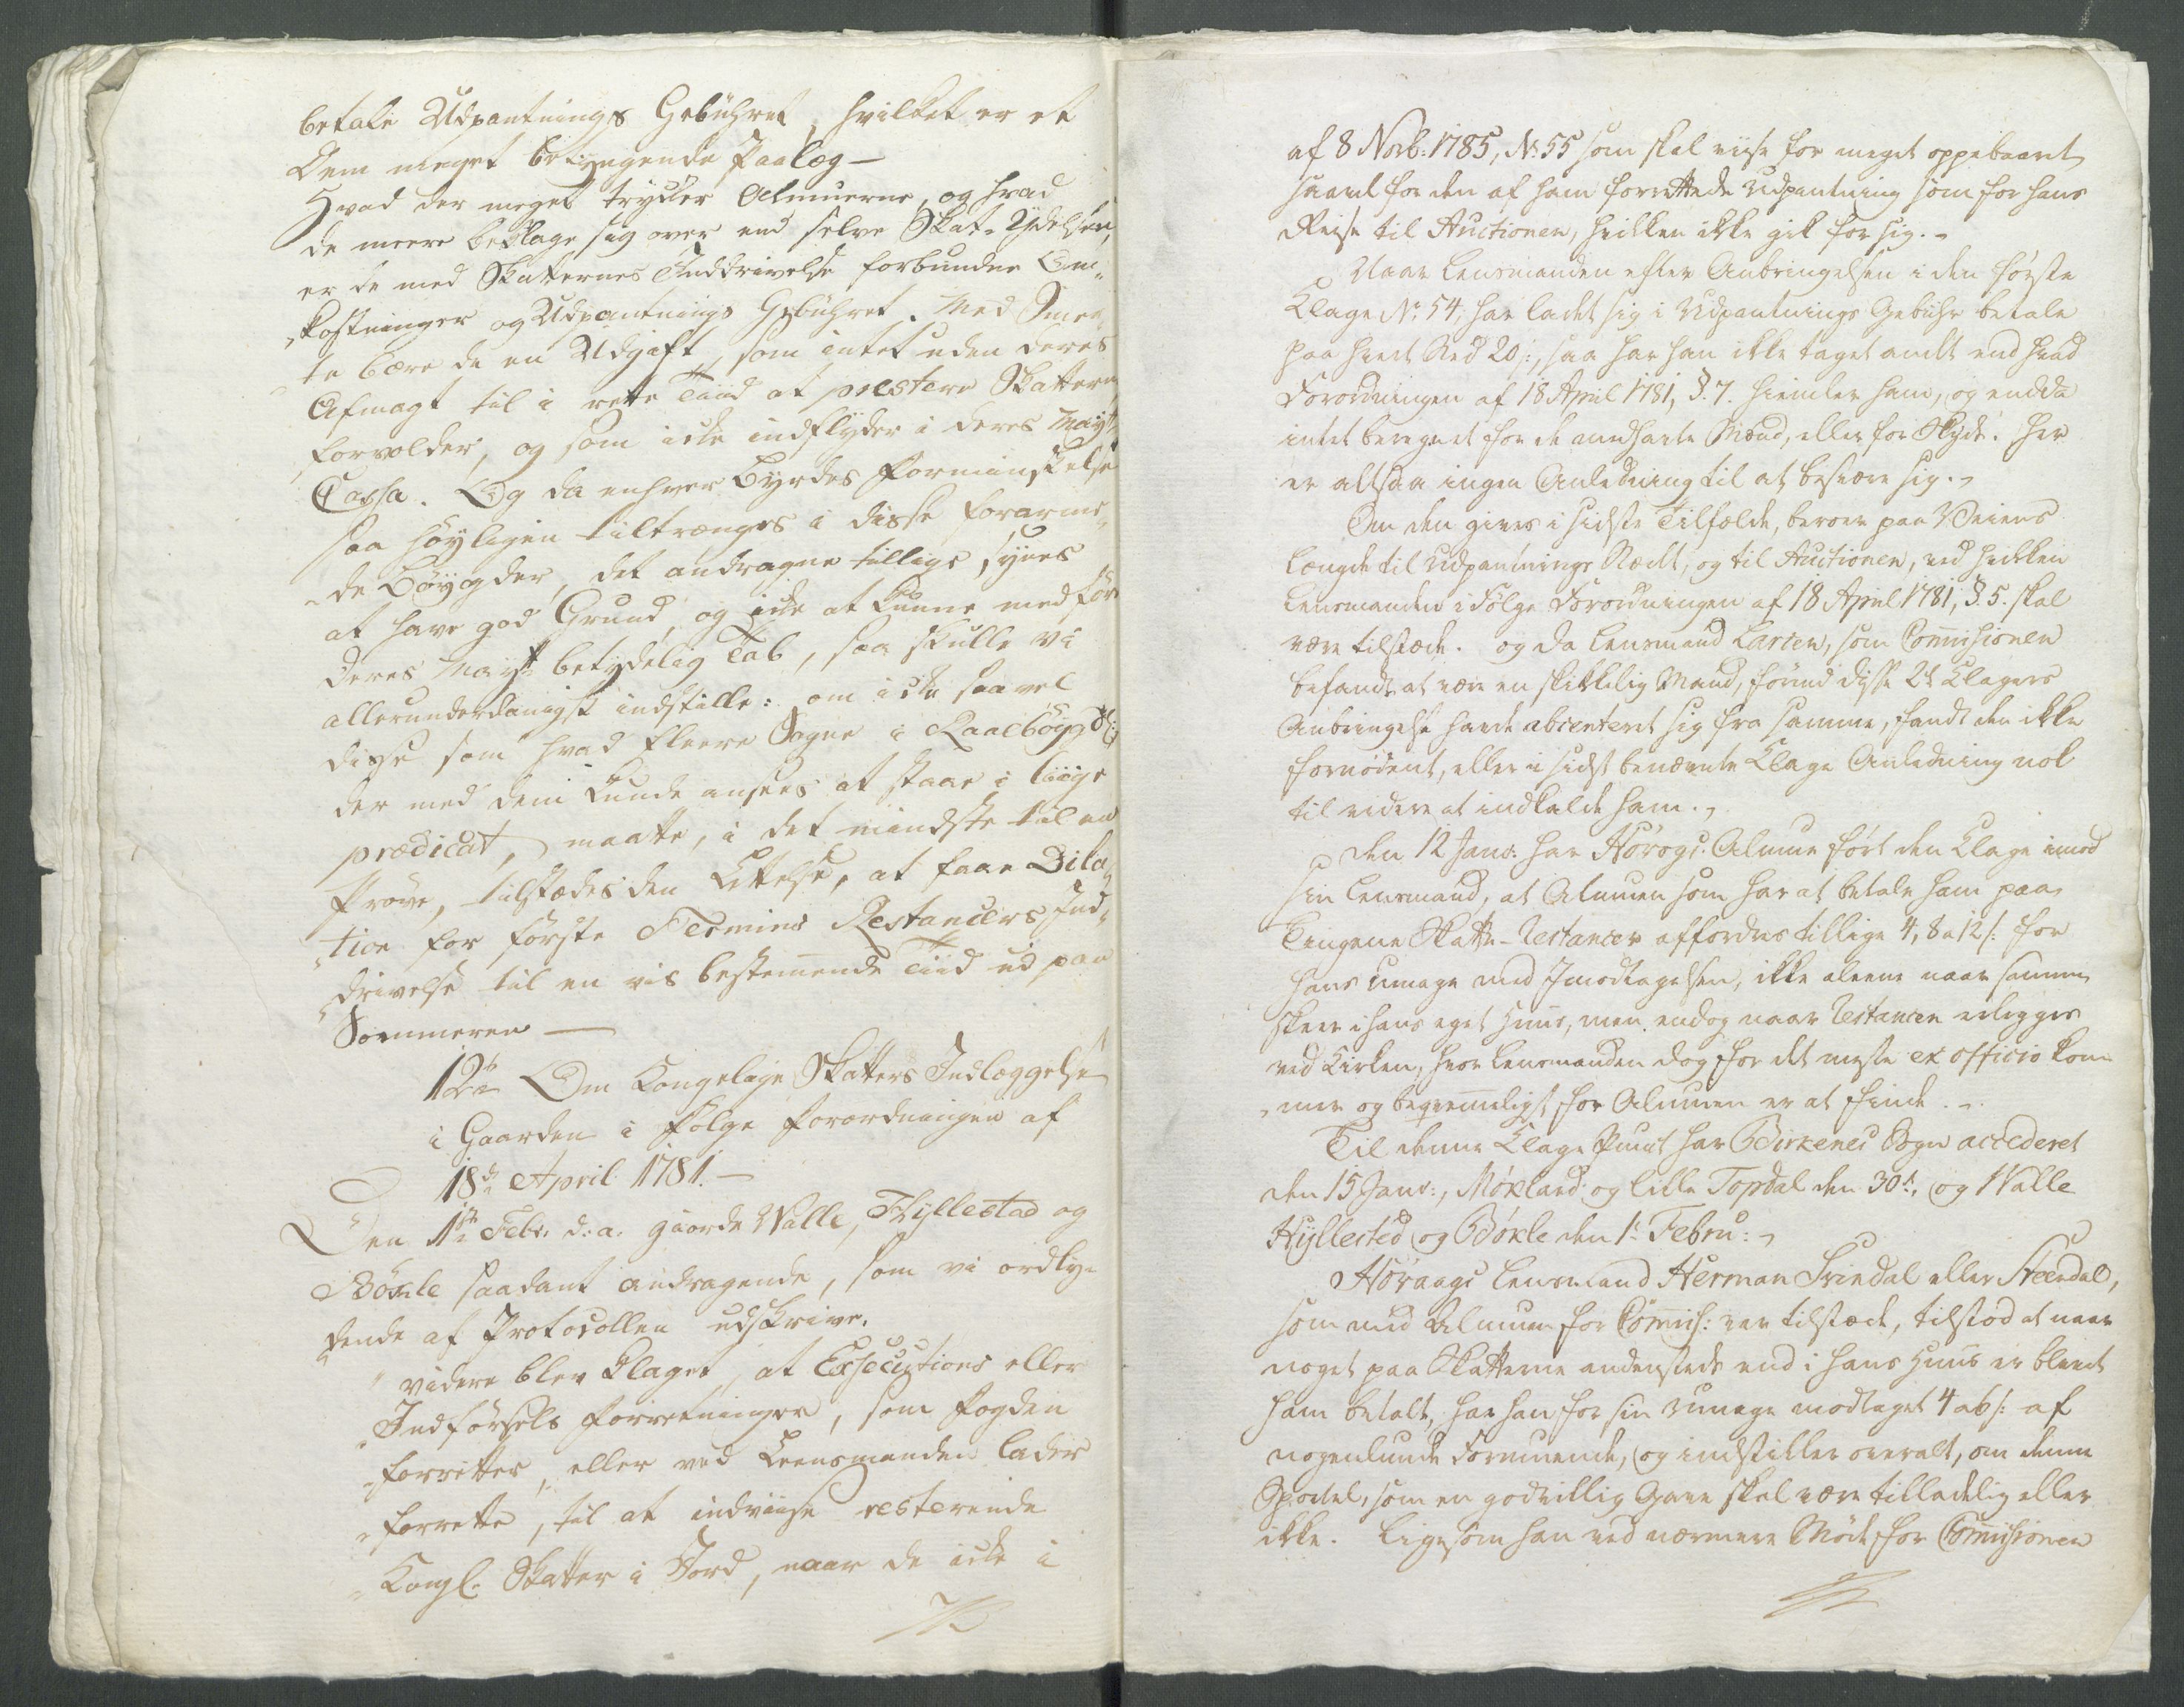 betale Udpantnings Gebühret, hvilket er et
Dem meget betyngende Paalæg —
Hvad der meget trycker Almuerne, og hvad
de meere beklage sig over end selve Skat-Ydelsen,
er de med Skatternes Inddrivelse forbundne Om-
kostninger og Udpantnings Gebühret. Med Smer-
te bære de en Udgift, som intet uden deres
Afmagt til i rette Tiid at præstere Skatterne
forvolder, og som icke indflyder i Deres Mayts
Cassa. Og da enhver Byrdes Formindskelse
saa høyligen tiltrænges i disse forarme-
de Bøygder, det andragne tillige synes
at have god Grund, og icke at kunne medføre
Deres Mayts betydelig Tab, saa skulle vi
allerunderdanigst indstille: om icke saavel
disse som hvad fleere Sogne i Raabøygd:
der med dem kunde ansees at staae i liige
prædicat, maatte, i det mindste til en
Prøve, tilstædes den Lettelse, at faae Dila-
tion for første Termins Restancers Ind-
drivelse til en vis bestemmende Tiid ud paa
Sommeren —
12te Om Kongelige Skatters Indlæggelse
i Gaarden i følge Forordningen af
18de April 1781. —
Den 1ste Febr. d: a. giorde Walle, Hyllestad og
Bøxle saadant andragende, som vi ordly-
dende af Protocollen udskrive.
" videre blev klaget, at Exsecutions eller
" Indførsels Forretninger, som Fogden
" forretter, eller ved Leensmanden lader
" forrette, til at indviise resterende
" Kongl. Skatter i Jord, naar de icke i
af 8 Novb: 1785, No 55 som skal viise for meget oppebaaret,
saavel for den af ham forrettede Udpantning som for hans
Reise til Auctionen, hvilken ikke gik for sig. -
Naar Lensmanden efter Anbringelsen i den første
Klage No 54, har ladet sig i Udpantnings Gebühr betale
paa hvert Sted 20 s:, saa har han ikke taget andet end hvad
Forordningen af 18 April 1781, §. 7. hiemler ham, og endda
intet beregnet for de medhavte Mænd, eller for Skyds. Her
er altsaa ingen Anledning til at besvære sig. -
Om den gives i sidste Tilfælde, beroer paa Veiens
Længde til Udpantnings Stedet, og til Auctionen, ved hvilken
Lensmanden i Følge Forordningen af 18 April 1781, §. 5. skal
være tilstæde. og da Lensmand Larsen, som Commissionen
befandt at være en skikkelig Mand, førend disse 2de Klagers
Anbringelse havde absenteret sig fra samme, fandt den ikke
fornødent, eller i sidst benævnte Klage Anledning nok
til videre at indkalde ham. -
Den 12 Janv: har Hørogs Almue ført den Klage imod
sin Lensmand, at Almuen som har at betale ham paa
Tingene Skatte-Restancer affordres tillige 4, 8 a 12 s: for
hans Umage med Imodtagelsen, ikke aleene naar samme
skeer i hans eget Huus, men endog naar Restancen erlægges
ved Kirken, hvor Lensmanden dog for det meste ex officio kom-
mer og beqvemmeligst for Almuen er at finde. -
Til denne Klage Punct har Birkenes Sogn accederet
den 15 Janv:, Møxland og lille Topdal den 30te, og Walle
Hyllested og Bøxle den 1te Febru: -
Høraags Lensmand Herman Svindal eller Steendal,
som med Almuen for Commiss: var tilstæde, tilstod at naar
noget paa Skatterne andenstæds end i hans Huus er blevet
ham betalt, har han for sin Umage modtaget 4 a 6 s: af
nogenlunde Formuende, og indstiller overalt, om denne
Sportel, som en godvillig Gave skal være tilladelig eller
ikke. Ligesom han ved nærmere Møde for Commissionen